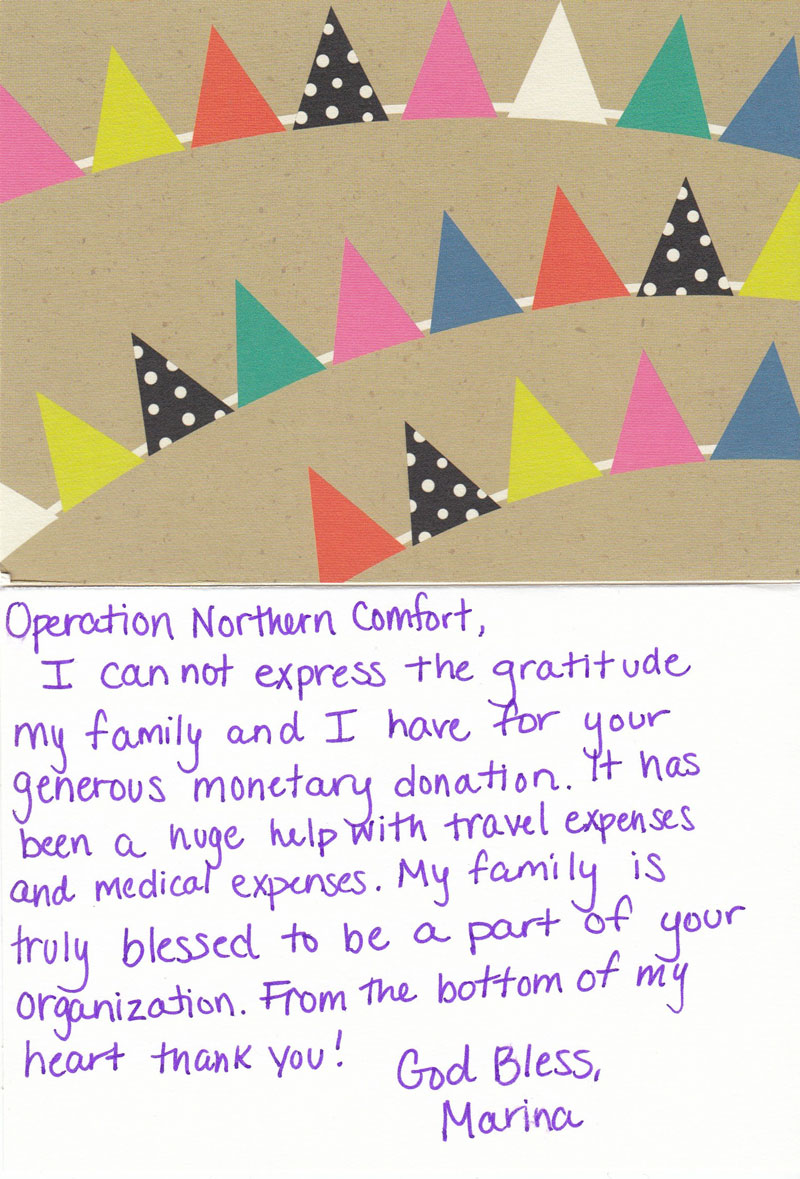 Operation Northern Comfort,
I can not express the gratitude
my family and I have for your
generous monetary donation. It has
been a huge help with travel expenses
and medical expenses. My family is
truly blessed to be a part of your
organization. From the bottom of my
heart thank you!
God Bless,
Marina